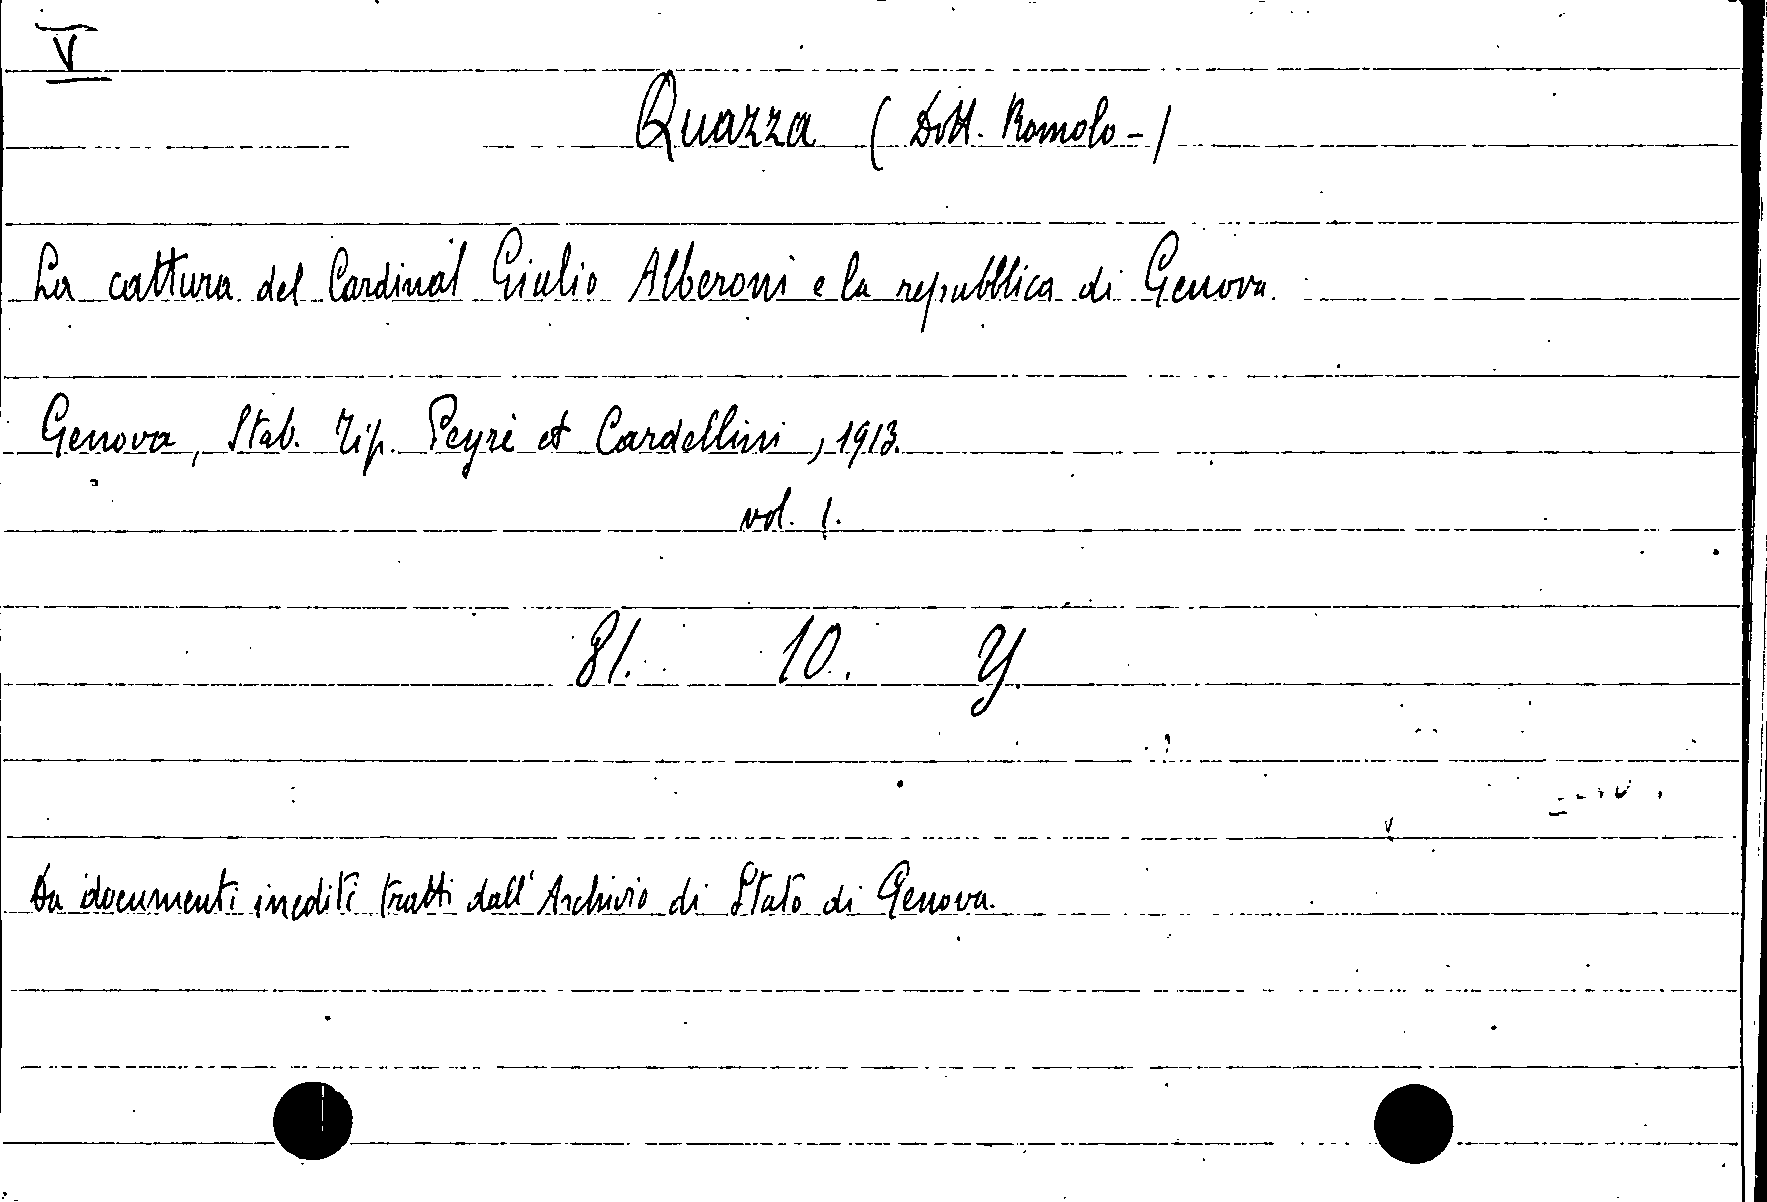 V
Quazza (Dott. Romolo-)
La cattura del Cardinal Giulio Alberoni e la repubblica di Genova.
Genova, Stab. Tip. Peyrè et Cardellini, 1913.
vol. 1.
81. 10. Y.
Da documenti inediti tratti dall'Archivio di Stato di Genova.